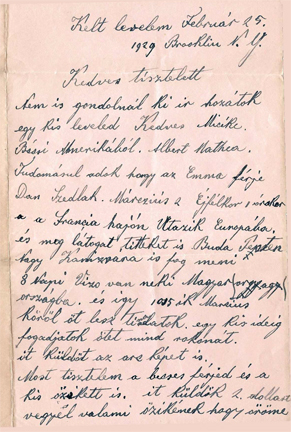 Kelt levelem Február 25.
1929 Brocklin N. Y.
Kedves tisztelett
Nem is gondolnál ki ir hozátok
egy kis leveled Kedves Micike.
Bécsi Amerikából. Albert Mathea.
Tudomásul adok hogy az Emma férje
Dan Szedlak. Márczius 2 Éjfélkor 1 orakor
a a Francia hajón Utazik Európába.
és meg látogat titeket is Buda Pesten
hogy Kanizsara is fog meni
8 Napi Vizo van neki Magyar
országba. és igy 10 ik Március
köröl ot lesz tinálatok, egy kis ideig
fogadjatok ötet mind rokonat.
it küldöt az ars képet is.
Most tisztelem a becses férjed és a
kis is. it küldök 2 dollart
vegyél valami özikének hogy öröme